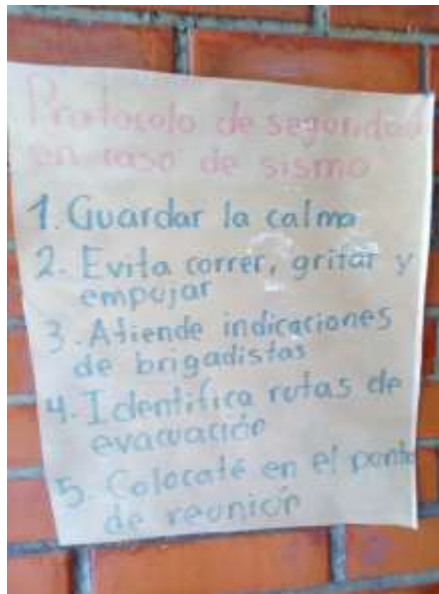 Protocolo de seguridad
en caso de sismo
1. Guardar la calma
2. Evita correr, gritar y
empujar
3. Atiende indicaciones
de brigadistas
4. Identifica rutas de
evacuación
5. Colocate en el punto
de reunión